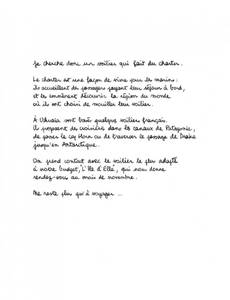 Je cherche donc un voilier qui fait du charter.
Le charter est une façon de vivre pour les marins :
ils accueillent des passagers payant leur séjour à bord,
et les emmènent découvrir la région du monde
où ils ont choisi de mouiller leur voilier.
A Ushuaia sont basés quelques voiliers français.
Ils proposent des croisières dans les canaux de Patagonie,
de passer le cap Horn ou de traverser le passage de Drake
jusqu'en Antarctique.
On prend contact avec le voilier le plus adapté
à notre budget, L'Ile d'Elle, qui nous donne
rendez-vous au mois de novembre.
Ne reste plus qu'à voyager ...